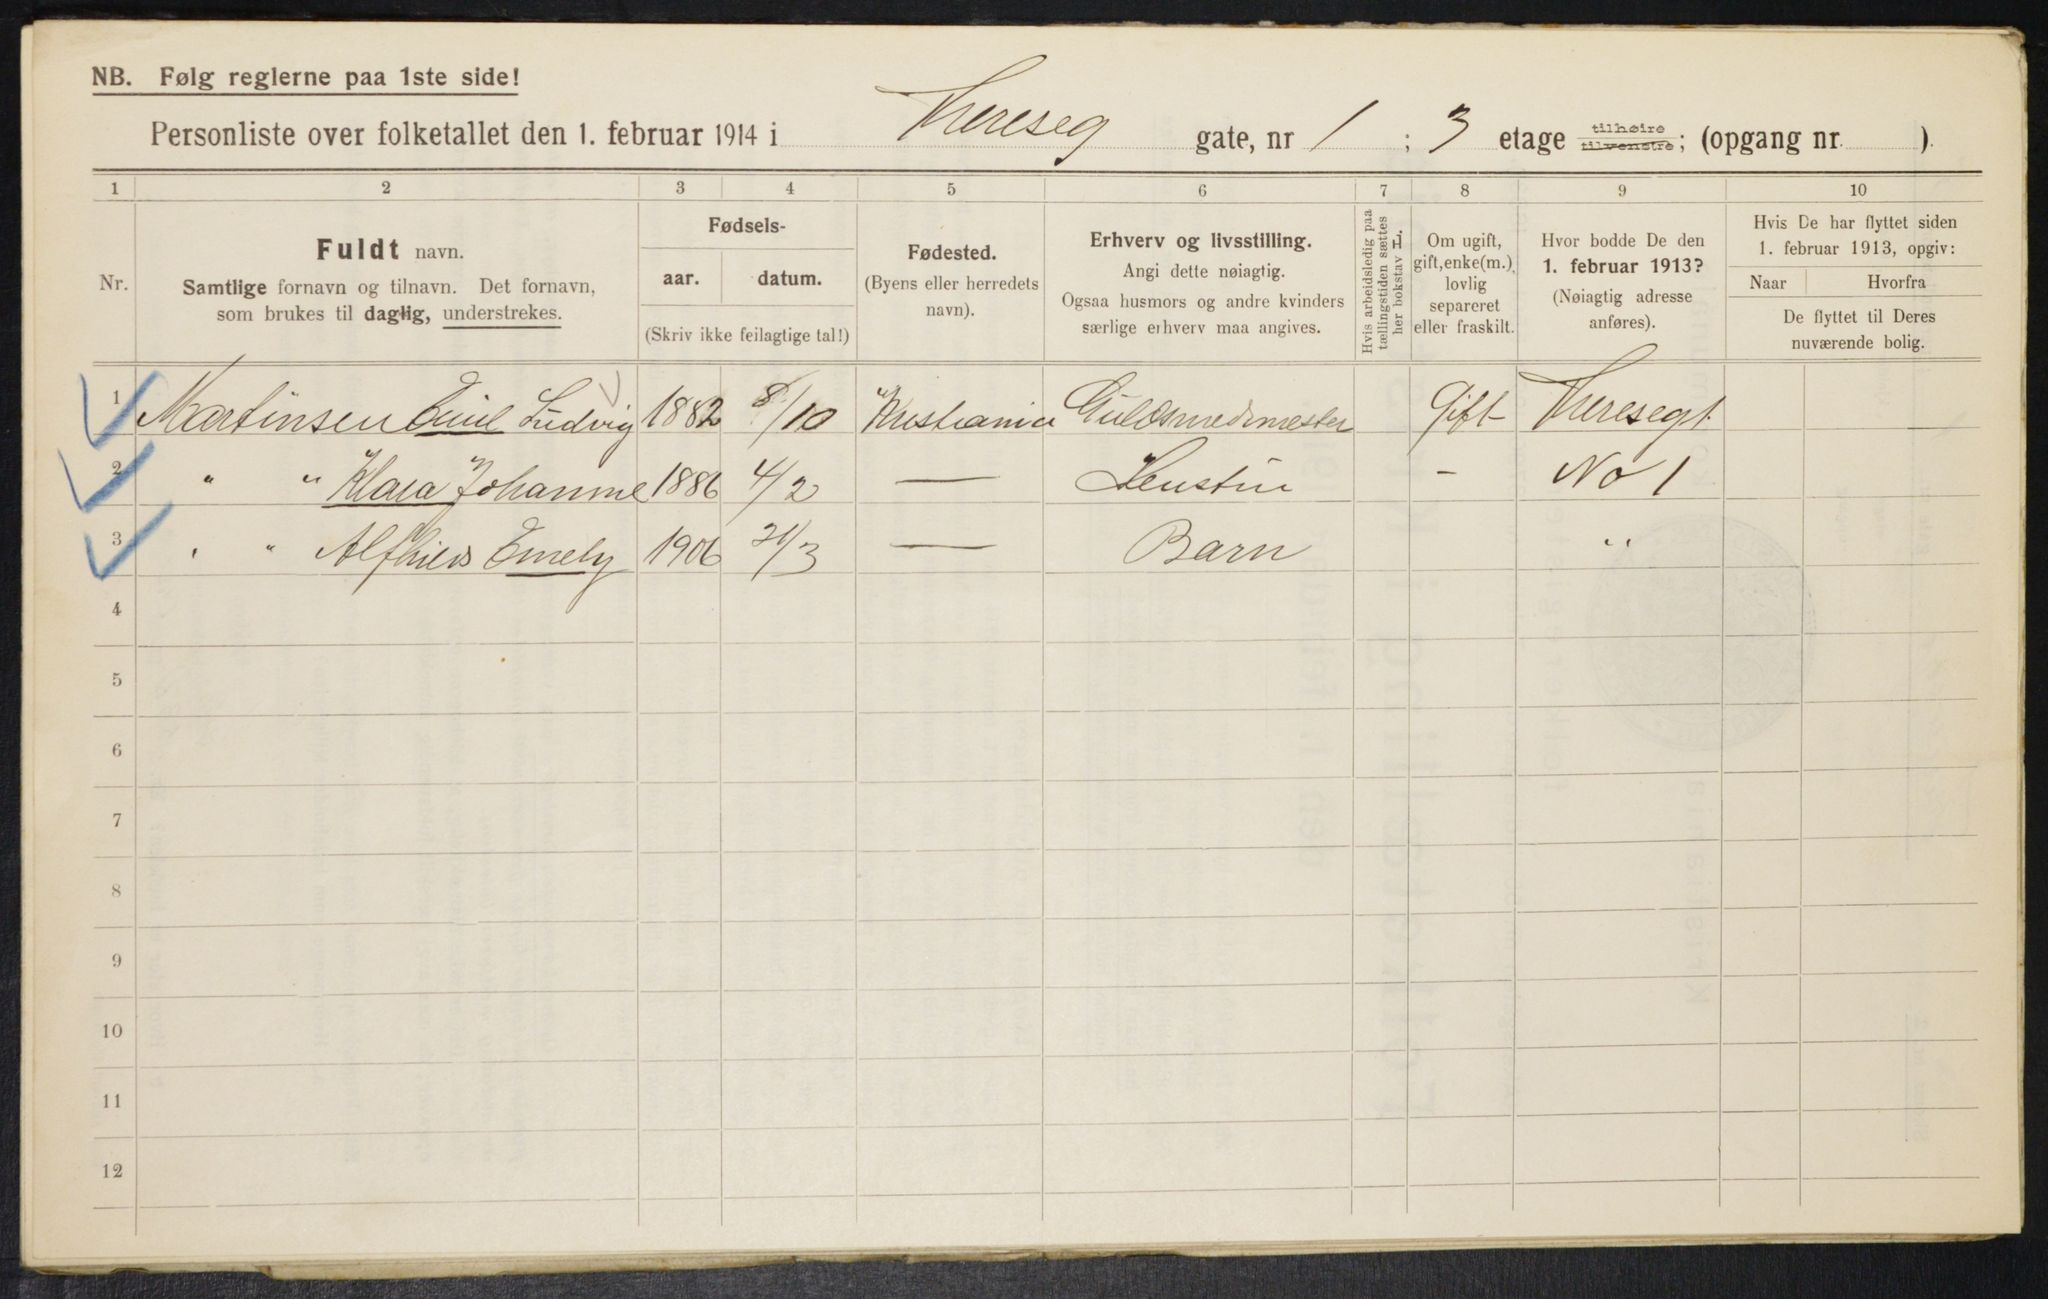 NB. Følg reglerne paa 1ste side!
Personliste over folketallet den 1. februar 1914 i Thereseg gate, nr 1 ; 3 etage tilhøire tilvenstre; (opgang nr. ).
1 2 3 4 5 6 7 8 9 10
Nr.
Fuldt navn.
Samtlige fornavn og tilnavn. Det fornavn,
som brukes til daglig, understrekes.
Fødsels-
aar. datum.
(Skriv ikke feilagtige tal!)
Fødested.
(Byens eller herredets
navn).
Erhverv og livsstilling.
Angi dette nøiagtig.
Ogsaa husmors og andre kvinders
særlige erhverv maa angives.
Hvis arbeidsledig paa
tællingstiden sættes
her bokstav L.
Om ugift,
gift, enke(m.),
lovlig
separeret
eller fraskilt.
Hvor bodde De den
1. februar 1913?
(Nøiagtig adresse
anføres).
Hvis De har flyttet siden
1. februar 1913, opgiv:
Naar Hvorfra
De flyttet til Deres
nuværende bolig.
1 Martinsen Emil Ludvig 1882 8/10 Kristiania Guldsmedmester Gift Theresegt.
2 " " Klara Johanne 1886 4/2 — Hustru - No 1
3 " " Alfhild Emely 1906 21/3 — Barn "
4
5
6
7
8
9
10
11
12